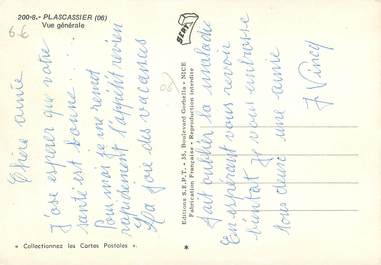 200-8. - PLASCASSIER (06)
Vue générale
6€
Chere amie
J'ose esperer que votre
santé est bonne...
Pour moi je me remet
rapidement l'appétit revien
La joie des vacances
fait oublier la maladie
En espérant vous revoir
bientot je vous embrasse
tous deux une amie
J Vincq
SEPT
Editions S.E.P.T. - 35, Boulevard Gorbella - NICE
Fabrication Française - Reproduction interdite
« Collectionnez les Cartes Postales ».
*